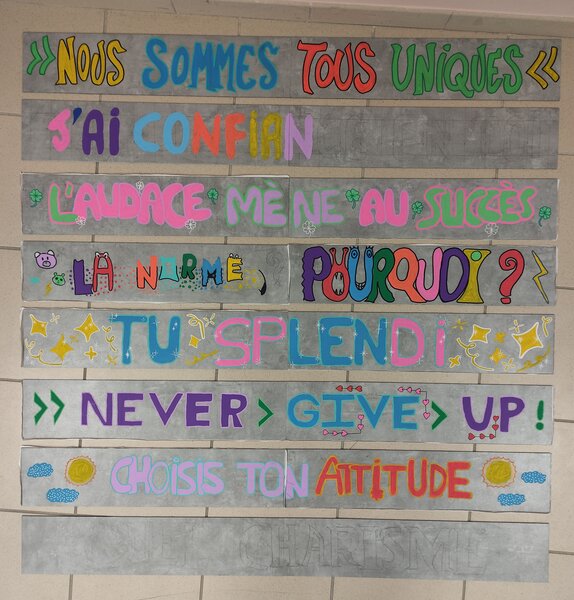 >> NOUS SOMMES TOUS UNIQUES <<
J'AI CONFIAN
L'AUDACE MÈNE AU SUCCÈS
LA NORME, POURQUOI ?
TU SPLENDI
>> NEVER > GIVE > UP !
CHOISIS TON ATTITUDE
CHARISME